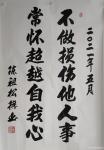 二〇二一年五月
不做损伤他人事
常怀超越自我心
陈祖松撰书